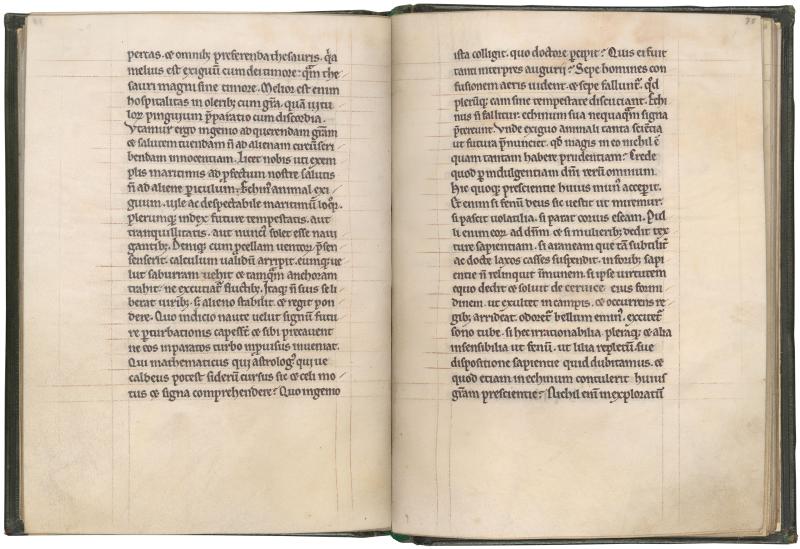 pertas. et omnib; preferenda thesauris. q̇a
melius est exiguū cum dei timore: q̃m the
sauri magni sine timore. Melior est enim
hospitalitas in olerib; cum gr̃a. quā uitu
lorꝝ pinguium p̃paratio cum discordia.
Vtamur ergo ingenio ad querendam gr̃am
et salutem tuendam ñ ad alienam circūscri
bendam innocentiam. Licet nobis uti exem
plis maritimis ad ꝓfectum nostre salutis
ñ ad aliene ꝑiculum. Echin᷒ animal exi
guum. uile ac despectabile maritimū loq̃r.
plerumq; index future tempestatis. aut
tranquillitatis. aut nunci᷒ solet esse naui
gantib;. Deniq; cum ꝓcellam uentorꝝ p̃sen
senserit. calculum ualidū arripit. eumq; ue
lut saburram uehit et tamq̃m anchoram
trahit. ne excutiat᷑ fluctib;. Itaq; ñ suis se li
berat uirib;. sꝫ alieno stabilit᷑ et regit pon
dere. Quo indicio naute uelut signū futu
re ꝑturbationis capessт᷑ et sibi precauent
ne eos inparatos turbo inpuisus inueniat.
Qui mathematicus qui astrolog᷒ qui ue
caldeus potest siderū cursus sic et celi mo
tus et signa comprehendere? Quo ingenio
ista colligit. quo doctore ꝑcipit? Quis ei fuit
tanti interpres augurii? Sepe homines con
fusionem aeris uident. et sepe fallunt᷑. qꝺ
pleriq; eam sine tempestate discutiant. Echi
nus ñ fallitur. echinum sua nequaq̃m signa
p̃tereunt. Vnde exiguo animali tanta sciētia
ut futura p̃nunciet. qꝺ magis in eo nichil ē
quam tantam habere prudentiam? Crede
quod ꝑ indulgentiam dñi rerū omnium.
Hic quoq; prescientie huius mun᷒ acceperit.
Et enim si fenū deus sic uestit ut miremur.
si pascit uolatilia. si parat coruis escam. Pul
li enim eorꝝ ad dñm. et si mulierib; dedit tex
ture sapientiam. si araneam que tā subtilit᷑
ac docte laxos casses suspendit. in forib; sapi
entie ñ relinquit īmunem. si ipse uirtutem
equo dedit et soluit de ceruice eius formi
dinem. ut exultet in campis. et occurrens re
gib; arrideat. odoret᷑ bellum emin᷒. excitet᷑
sono tube. si hec irrationabilia pleraq; et alia
insensibilia ut fenū. ut lilia repletū. sue
dispositione sapientie quid dubitamus. et
quod etiam in echinum contulerit huius
gr̃am prescientie? Nichil enī inexploratū